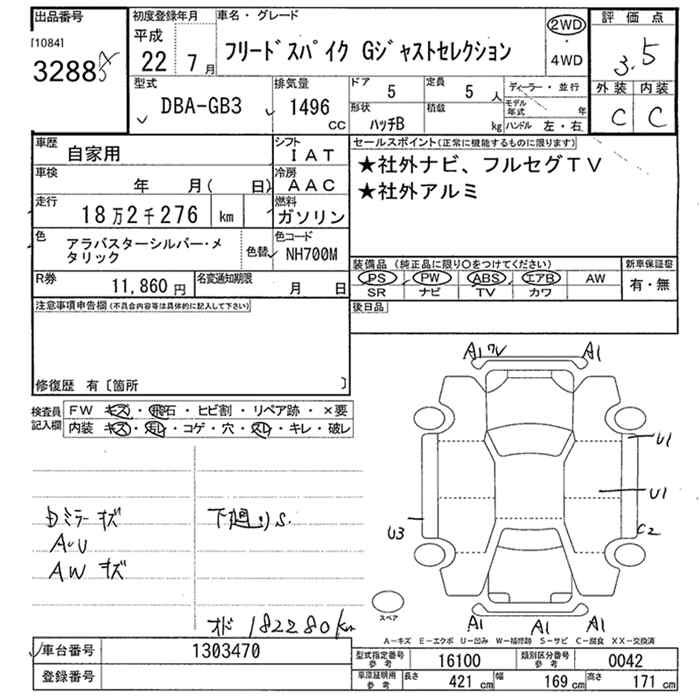 出品番号
[1084]
3288
初度登録年月
平成
22 7月
車名・グレード
フリードスパイク Gジャストセレクション
2WD
・
4WD
評価点
3.5
外装 内装
C C
型式
DBA-GB3
排気量
1496
CC
ドア
5
定員
5 人
形状
ハッチB
積載
kg
ディーラー・並行
モデル年式 年
ハンドル 左・右
車歴
自家用
シフト
IAT
車検
年 月( 日)
冷房
AAC
走行
18万2千276 km
燃料
ガソリン
色
アラバスターシルバー・メタリック
色替
色コード
NH700M
R券
11,860円
名変通知期限
月 日
セールスポイント(正常に機能するものに限ります)
★社外ナビ、フルセグTV
★社外アルミ
装備品 (純正品に限り○をつけてください)
PS PW ABS エアB AW
SR ナビ TV カワ
新車保証書
有・無
後日品
注意事項申告欄(不具合内容等は具体的に記入して下さい)
修復歴 有〔箇所 〕
検査員記入欄
FW キズ・飛石・ヒビ割・リペア跡・×要
内装 キズ・モレ・コゲ・穴・スレ・キレ・破レ
ミラー キズ
A・U
AW キズ
下廻り S.
オド 182280km
A1 A1
U1
U1
U3
C2
A1 A1 A1
スペア
A−キズ E−エクボ U−凹み W−補修跡 S−サビ C−腐食 XX−交換済
車台番号
1303470
登録番号
型式指定番号
参考
16100
類別区分番号
参考
0042
車庫証明用
参考
長さ
421 cm
幅
169 cm
高さ
171 cm